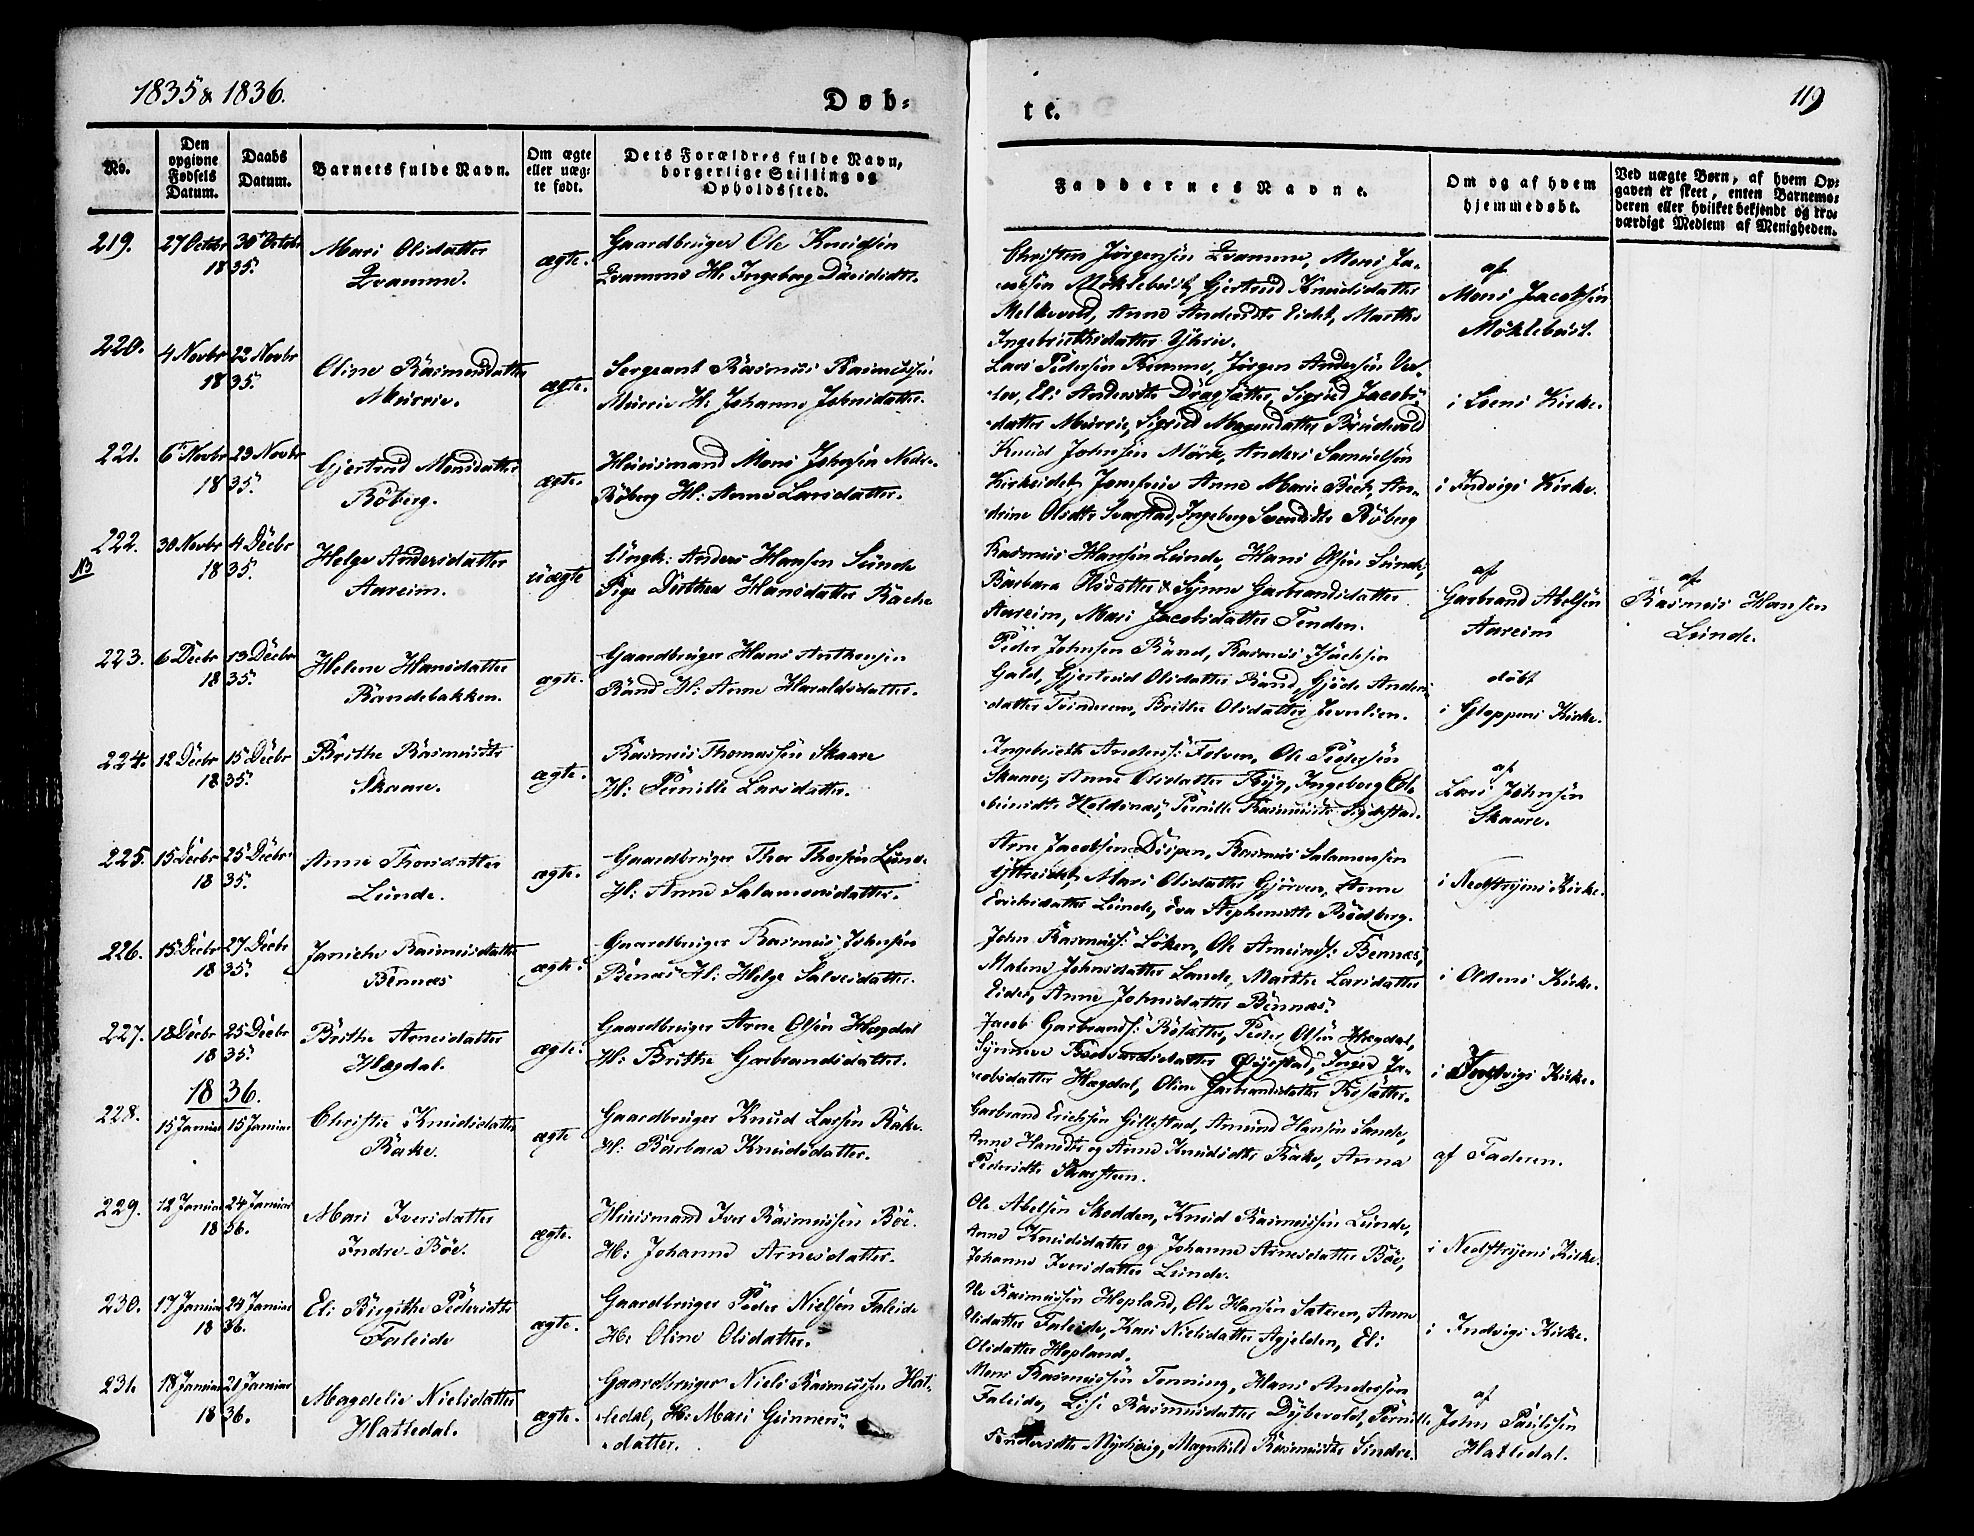 1835 & 1836.
Døb-
te.
119
No.
Den opgivne Fødsels Datum.
Daabs Datum.
Barnets fulde Navn.
Om ægte eller uægte født.
Dets Forældres fulde Navn, borgerlige Stilling og Opholdssted.
Faddernes Navne.
Om og af hvem hjemmedøbt.
Ved uægte Børn, af hvem Opgaven er skeet, enten Barnemoderen eller hvilket bekjendt og troværdigt Medlem af Menigheden.
219. 27 Octobr 30 Octobr 1835. Mari Olsdatter Qvamme. ægte.
Gaardbruger Ole Knudsen
Qvamme H: Ingeborg Davidsdtr.
Christen Jørgensen Qvamme, Mons Ja-
cobsen Møklebust, Gjertrud Knudsdatter
Melkevold, Anne Andersdtr Eide, Marthe
Ingebrigtsdatter Yhrie.
af
Mons Jacobsen
Møklebust.
220. 4 Novbr 22 Novbr 1835. Oline Rasmusdatter Muurie. ægte.
Sergeant Rasmus Rasmussen
Muurie H: Johanne Johnsdatter.
Lars Pedersen Rimme, Jørgen Andersen
Eli Andersdtr Dragsætter, Sigrid Jacobs-
datter Muurie, Sigrid Mogensdatter Bruduvold
i Loens Kirke.
221. 6 Novbr 29 Novbr 1835. Gjertrud Monsdatter Røberg. ægte.
Huusmand Mons Johnsen Nedre-
Røberg H: Anne Larsdatter.
Knud Johnsen Mørk, Anders Samuelsen
Kirkeide, Jomfrue Anne Marie Beck, An-
drine Olsdtr Svarstad, Ingeborg Svendsdtr Røberg
i Indvigs Kirke.
222. 30 Novbr 4 Decbr 1835. Helge Andersdatter Aareim. uægte
NB
Ungk: Anders Hansen Lunde
Pige Dorthea Hansdatter Rache
Rasmus Hansen Lunde, Hans Olsen Lunde,
Barbara Olsdatter & Synne Garbrandsdatter
Aareim, Mari Jacobsdatter Tenden.
af
Garbrand Abelsen
Aareim
af
Rasmus Hansen
Lunde.
223. 6 Decbr 13 Decbr 1835. Helene Hansdatter Randebakken. ægte.
Gaardbruger Hans Anthonsen
Rand H: Anne Haraldsdatter.
Peder Johnsen Rand, Rasmus
Gald, Gjertrud Olsdatter Rand, Gjøde Anders-
datter Tvinderem, Brithe Olsdatter
døbt
i Gloppens Kirke.
224. 12 Decbr 15 Decbr 1835. Brithe Rasmusdtr Skaare. ægte.
Rasmus Thomassen Skaare
H: Pernille Larsdatter.
Ingebrigt Anders: Folven, Ole Pedersen
Skaare, Anne Olsdatter Ryg, Ingeborg
Holdsnæs, Pernille Rasmusdtr
af
Lars Johnsen
Skaare.
225. 15 Decbr 25 Decbr 1835. Anne Thorsdatter Lunde. ægte.
Gaardbruger Thor Thorsen Lunde
H: Anne Salamonsdatter.
Arne Jacobsen Dispen, Rasmus Salamonsen
Ytreeide, Mari Olsdatter Gjørven, Anne
Erichsdatter Lunde, Eva Stephensdtr Rødberg.
i Nedstryens Kirke.
226. 15 Decbr 27 Decbr 1835. Janiche Rasmusdatter Bennæs ægte.
Gaardbruger Rasmus Johnsen
Benæs H: Helge Salvesdatter.
John Rasmuss: Løken, Ole Amunds: Bennæs,
Malene Johnsdatter Sande, Marthe Larsdatter
Eide, Anne Johnsdatter Bennæs.
i Oldens Kirke.
227. 18 Decbr 25 Decbr 1835. Brithe Arnesdatter Hægdal. ægte.
Gaardbruger Arne Olsen Hægdal
H: Brithe Garbrandsdatter.
Jacob Garbrands: Rosætter, Peder Olsen Hægdal,
Synneve Øvrestad, Inger Ja-
cobsdatter Hægdal, Oline Garbrandsdatter Rosætter.
i Indvigs Kirke.
1836.
228. 15 Januar 15 Januar Christie Knudsdatter Rake. ægte
Gaardbruger Knud Larsen Rake.
H: Barbara Knudsdatter.
Garbrand Erichsen Gillestad, Amund Hansen Sande,
Anne Hansdtr og Anne Knudsdtr Rake, Anna
Pedersdtr Skarsteen.
af Faderen.
229. 12 Januar 24 Januar 1836. Mari Iversdatter Indre-Bøe. ægte.
Huusmand Iver Rasmussen Bøe.
H: Johanne Arnesdatter.
Ole Abelsen Skedden, Knud Rasmussen Lunde,
Anne Knudsdatter og Johanne Arnesdatter Bøe,
Johanne Iversdatter Lunde.
i Nedstryens Kirke.
230. 17 Januar 24 Januar 1836. Eli Birgithe Pedersdtr Faleide ægte.
Gaardbruger Peder Nielsen Faleide
H: Oline Olsdatter.
Ole Rasmussen Hopland, Ole Hansen Sateren, Anne
Olsdatter Faleide, Kari Nielsdatter Agjelden, Eli
Olsdatter Hopland.
i Indvigs Kirke.
231. 18 Januar 21 Januar 1836. Magdeli Nielsdatter Hatledal. ægte.
Gaardbruger Niels Rasmussen Hat-
ledal, H: Mari Gunners-
datter.
Mons Rasmussen Tenning, Hans Andersen
Faleide, Lisi Rasmusdatter Dybevold, Pernille
Andersdtr Myrhaug, Magnhild Rasmusdtr Sindre.
af
John Paulsen
Hatledal.